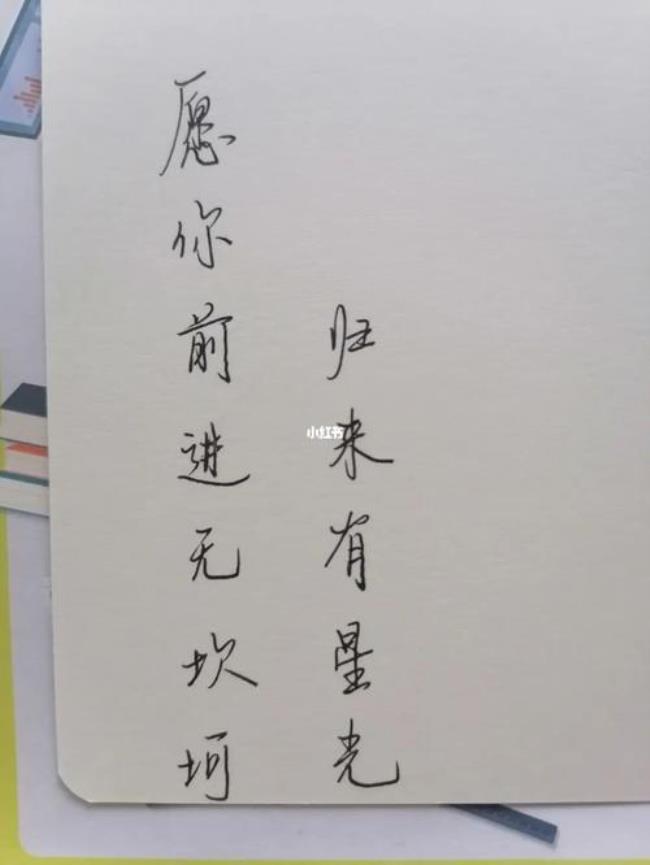 愿你前进无坎坷
归来有星光
小红书